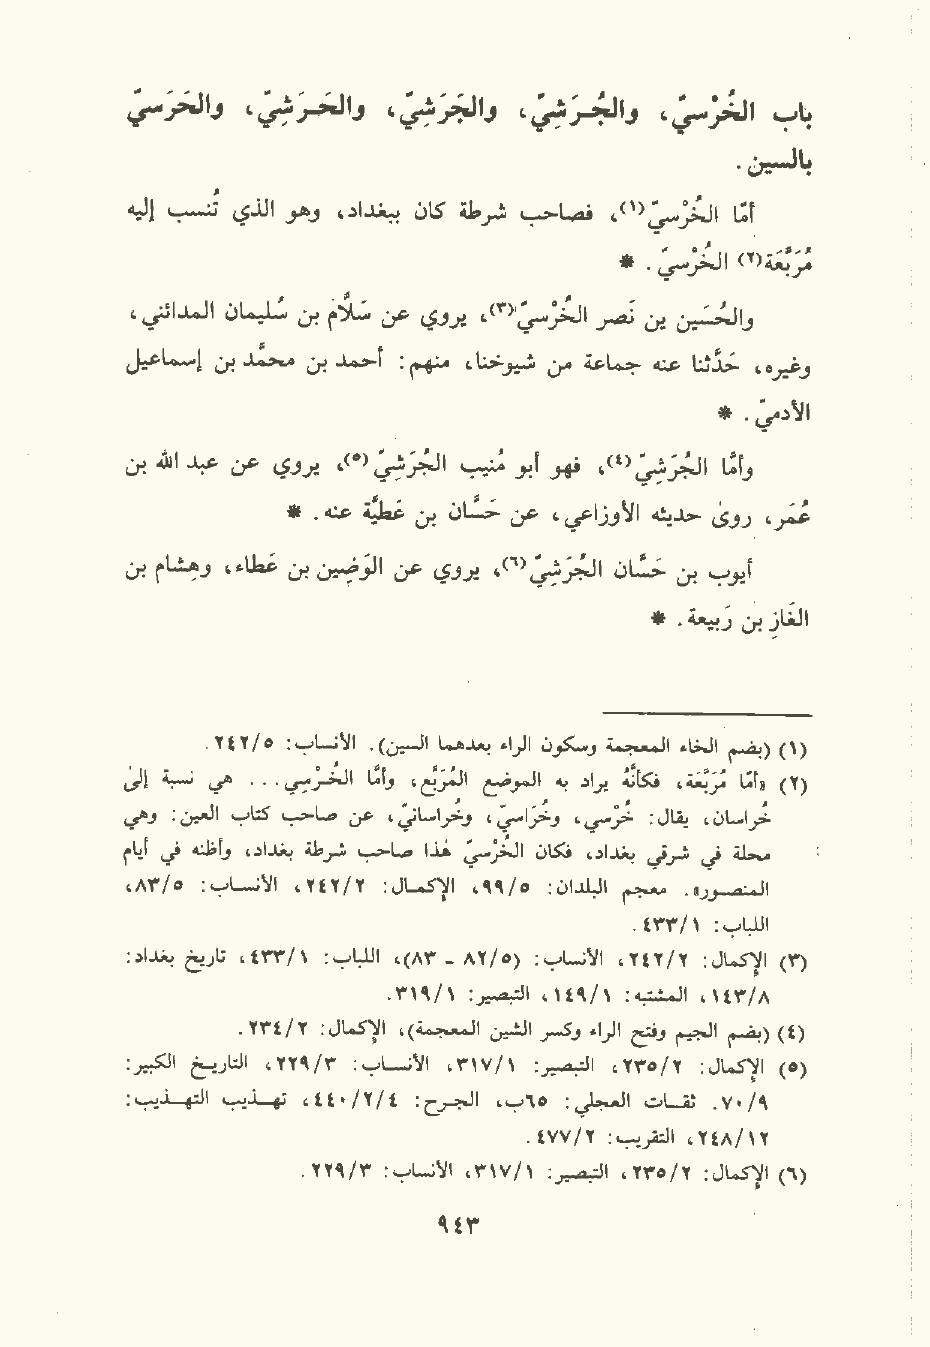 باب الخُرْسيّ، والجُـرَشِيّ، والجَرَشِيّ، والحَـرَشِيّ، والحَرَسيّ
بالسين.
أمّا الخُرْسيّ(١)، فصاحب شرطة كان ببغداد، وهو الذي تُنسب إليه
مُرَبَّعَة(٢) الخُرْسيّ. *
والحُسَين بن نَصر الخُرْسيّ(٣)، يروي عن سَلاَّم بن سُليمان المدائني،
وغيره، حَدَّثنا عنه جماعة من شيوخنا، منهم: أحمد بن محمَّد بن إسماعيل
الأدميّ. *
وأمَّا الجُرَشِيّ(٤)، فهو أبو مُنيب الجُرَشِيّ(٥)، يروي عن عبد الله بن
عُمَر، روىٰ حديثه الأوزاعي، عن حَسَّان بن عَطيَّة عنه. *
أيوب بن حَسَّان الجُرَشِيّ(٦)، يروي عن الوَضِين بن عَطاء، وهِشام بن
الغَازِ بن رَبيعة. *
(١) (بضم الخاء المعجمة وسكون الراء بعدهما السين). الأنساب: ٢٤٢/٥.
(٢) «أمّا مُرَبَّعَة، فكأنَّه يراد به الموضع المُرَبَّع، وأمَّا الخُرْسي... هي نسبة إلىٰ
خُراسان، يقال: خُرْسي، وخُرَاسيّ، وخُراسانيّ، عن صاحب كتاب العين: وهي
محلة في شرقي بغداد، فكان الخُرْسيّ هٰذا صاحب شرطة بغداد، وأظنه في أيام
المنصور». معجم البلدان: ٩٩/٥، الإكمال: ٢٤٢/٢، الأنساب: ٨٣/٥،
اللباب: ٤٣٣/١.
(٣) الإكمال: ٢٤٢/٢، الأنساب: (٨٢/٥ - ٨٣)، اللباب: ٤٣٣/١، تاريخ بغداد:
١٤٣/٨، المشتبه: ١٤٩/١، التبصير: ٣١٩/١.
(٤) (بضم الجيم وفتح الراء وكسر الشين المعجمة)، الإكمال: ٢٣٤/٢.
(٥) الإكمال: ٢٣٥/٢، التبصير: ٣١٧/١، الأنساب: ٢٢٩/٣، التاريخ الكبير:
٧٠/٩. ثقات العجلي: ٦٥ب، الجرح: ٤٤٠/٢/٤، تهذيب التهذيب:
٢٤٨/١٢، التقريب: ٤٧٧/٢.
(٦) الإكمال: ٢٣٥/٢، التبصير: ٣١٧/١، الأنساب: ٢٢٩/٣.
٩٤٣